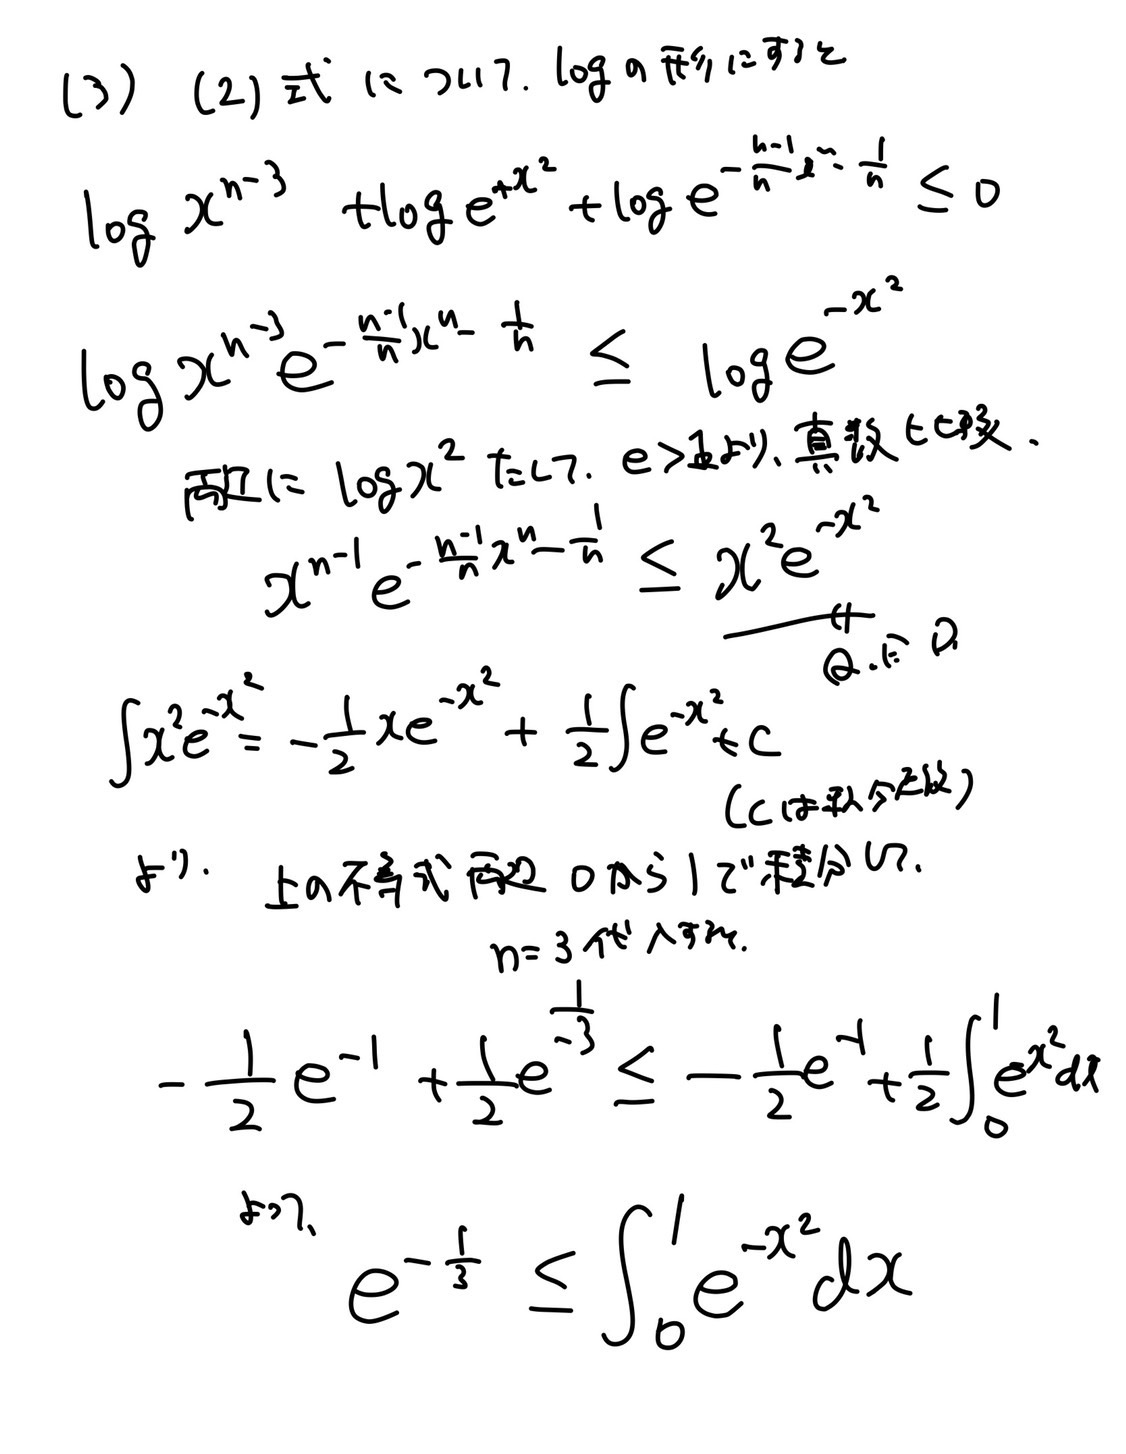 (3) (2)式について、logの形にすると
log x^{n-3} + log e^{+x^2} + log e^{-\frac{n-1}{n}x^n - \frac{1}{n}} ≤ 0
log x^{n-3} e^{-\frac{n-1}{n}x^n - \frac{1}{n}} ≤ log e^{-x^2}
両辺に log x^2 たして、e>1より、真数比較、
x^{n-1} e^{-\frac{n-1}{n}x^n - \frac{1}{n}} ≤ x^2 e^{-x^2}
∫x^2 e^{-x^2} = -\frac{1}{2} x e^{-x^2} + \frac{1}{2}∫e^{-x^2} + C
(Cは積分定数)
より、上の不等式両辺 0から1で積分して、
n=3代入すると、
-\frac{1}{2} e^{-1} + \frac{1}{2} e^{\frac{1}{-3}} ≤ -\frac{1}{2} e^{-1} + \frac{1}{2}∫_0^1 e^{x^2} dx
よって、
e^{-\frac{1}{3}} ≤ ∫_0^1 e^{-x^2} dx